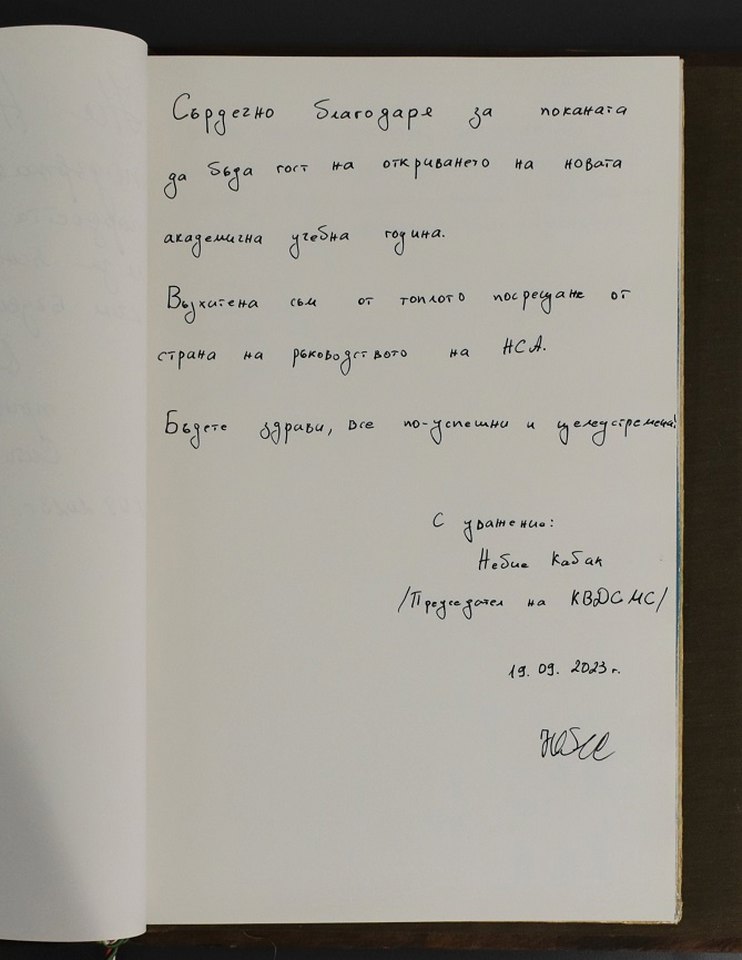 Сърдечно благодаря за поканата
да бъда гост на откриването на новата
академична учебна година.
Възхитена съм от топлото посрещане от
страна на ръководството на НСА.
Бъдете здрави, все по-успешни и целеустремени!
С уважение:
Небие Кабак
/Председател на КВДСМС/
19.09.2023г.